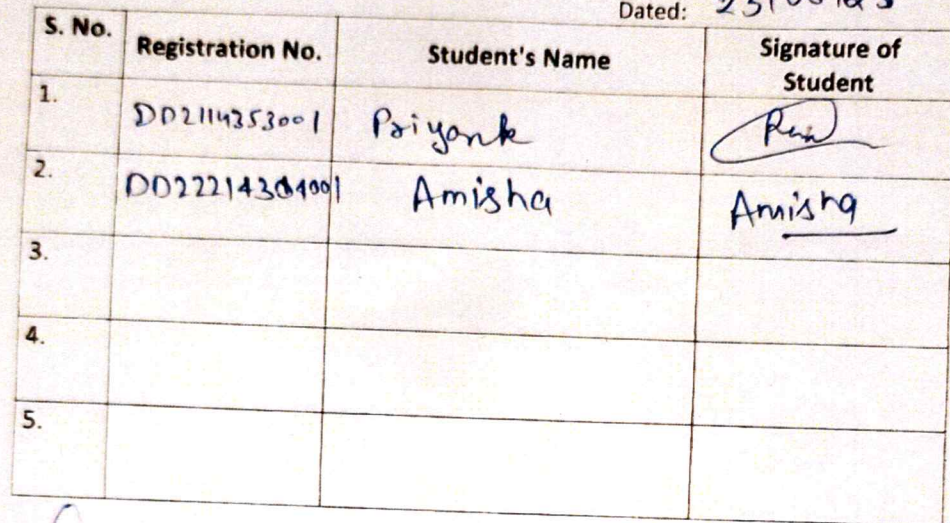 Dated:
S. No. Registration No. Student's Name Signature of Student
1. DD2114353001 Priyank
2. Amisha Amisha
3.
4.
5.